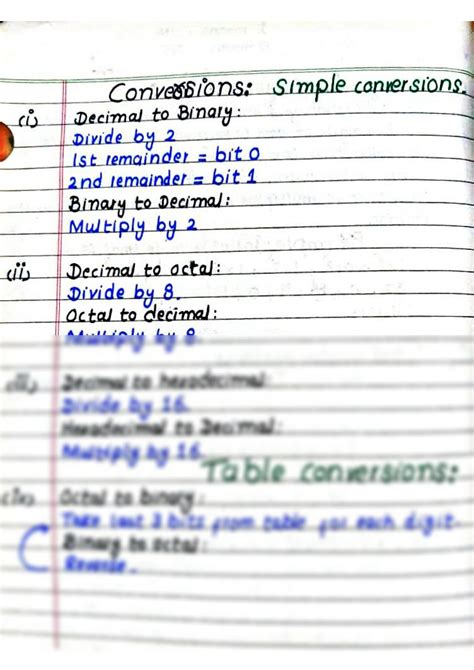 Conversions: Simple conversions.
(i) Decimal to Binary:
Divide by 2
1st remainder = bit 0
2nd remainder = bit 1
Binary to Decimal:
Multiply by 2
(ii) Decimal to octal:
Divide by 8.
Octal to decimal:
Multiply by 8.
Decimal to hexadecimal:
Divide by 16.
Hexadecimal to Decimal:
Multiply by 16.
Table conversions:
Octal to binary:
Take last 3 bits from table for each digit.
Binary to octal:
Reverse.